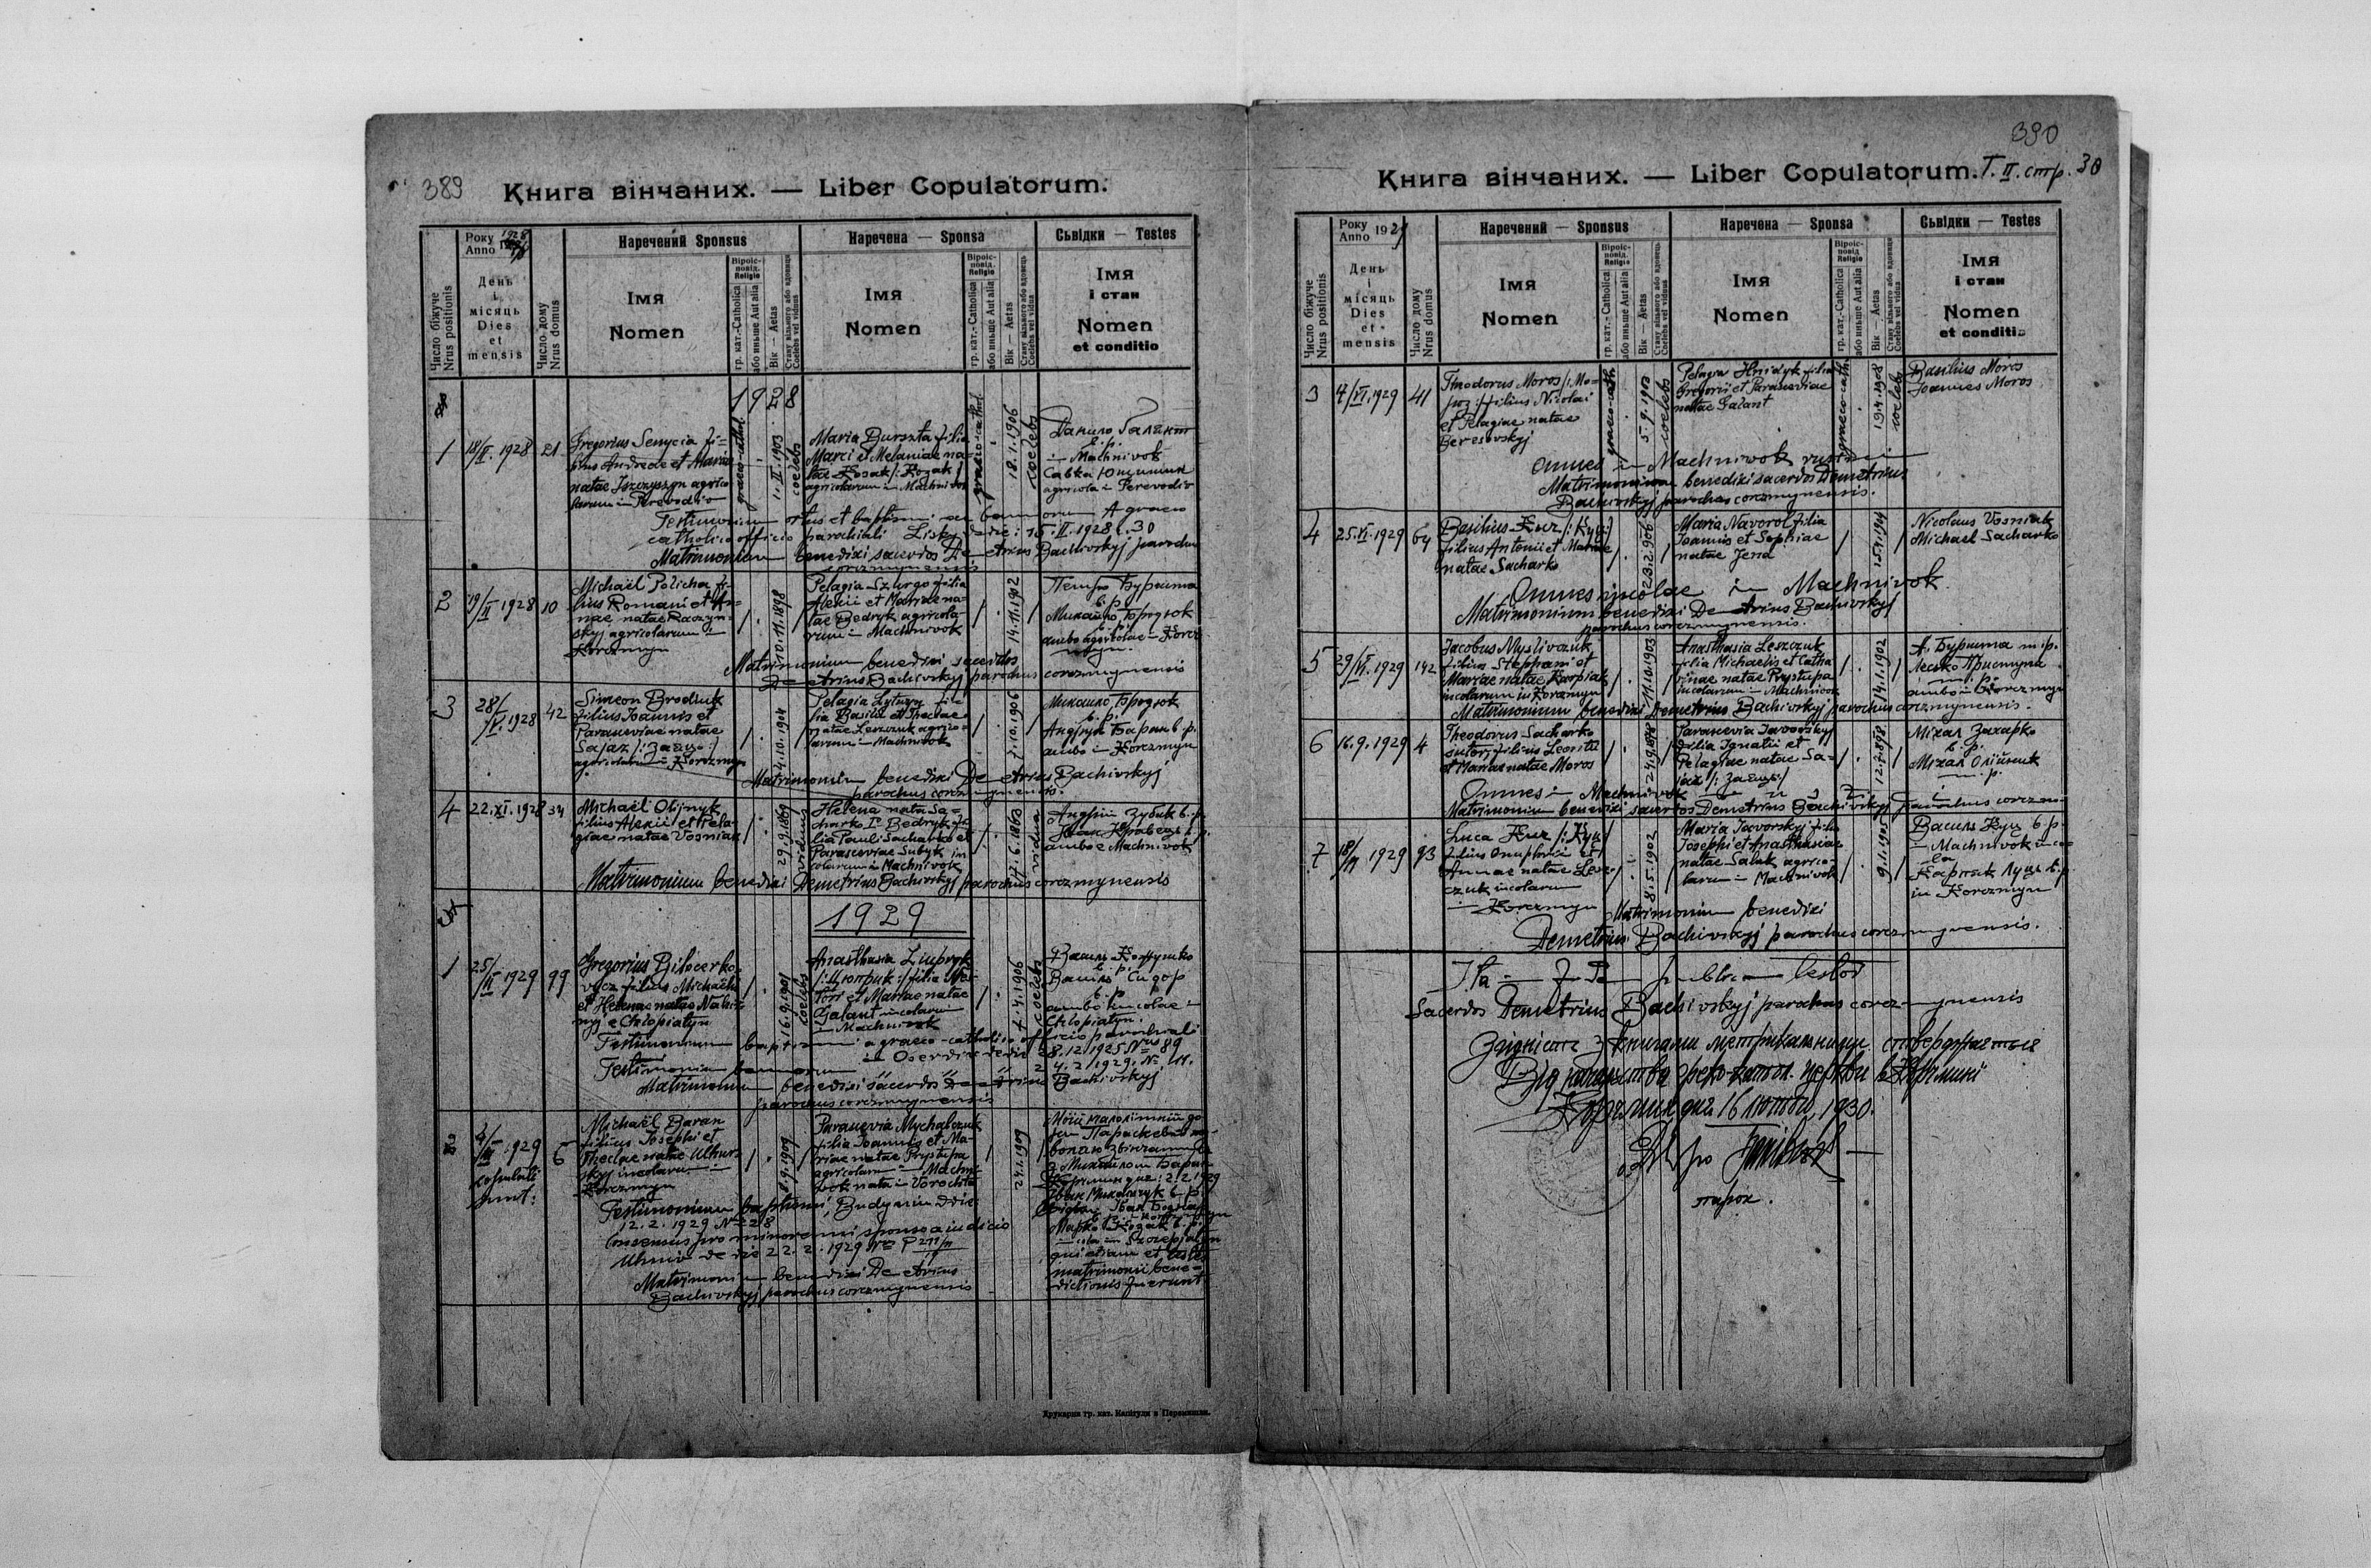 389
Книга вінчаних. — Liber Copulatorum.
Року
Anno 1928
Наречений Sponsus
Наречена — Sponsa
Сьвідки — Testes
Число біжуче
Nrus positionis
День
і
місяць
Dies
et
mensis
Число дому
Nrus domus
Імя
Nomen
Віроіс-
повід.
Religio
гр. кат.-Catholica
або иньше Aut alia
Вік — Aetas
Стану вільного або вдовець
Coelebs vel viduus
Імя
Nomen
Віроіс-
повід.
Religio
гр. кат.-Catholica
або иньше Aut alia
Вік — Aetas
Стану вільного або вдовець
Coelebs vel vidua
Імя
і стан
Nomen
et conditio
1928
1
18/II. 1928
21
Gregorius Senycia fi-
lius Andreae et Mariae
natae Iszczyszyn agrico-
larum in Perevodiv
graeco-cathol.
1. II. 1903
coelebs
Maria Burszta filia
Marci et Melaniae na-
tae Kosak /: Kozak /
agricolarum in Machnivok
graeco-cathol.
18.1.1906
coelebs
Данило Галянт
в.р.
in Machnivok
Савка
agricola in Perevodiv
Testimonium ortus et baptismi seu bannorum A graeco
catholico officio parochiali Lisky de die: 15.II.1928 l. 30
Matrimonium benedixi sacerdos Demetrius Bachivskyj parochus
corczmynensis
2
19/II 1928
10
Michaël Policha fi-
lius Romani et An-
nae natae Raczyn-
skyj agricolarum in
Korczmyn
10.11.1898
Pelagia Szurgo filia
Alexii et Mariae na-
tae Bedryk agricola-
rum in Machnivok
14.11.1902
Петро Буршта
в.р.
Михайло Бродюк
ambo agricolae in Korcz-
myn.
Matrimonium benedixi sacerdos
Demetrius Bachivskyj parochus corczmynensis
3
28/
V. 1928
42
Simeon Brodiuk
filius Joannis et
Parasceviae natae
Sajaz /: Заяць :/
agricolarum in Korczmyn
4.10.1904
Pelagia fi-
lia Basilii et Theclae
natae Leszczuk agrico-
larum in Machnivok
7.10.1906
Михайло Бродюк
в.р.
Андрух Баран в.р.
ambo in Korczmyn
Matrimonium benedixi Demetrius Bachivskyj
parochus corczmynensis.
4
22.XI.1928
34
Michaël Olijnyk
filius Alexii et Pela-
giae natae Vosniak
29.9.1869
viduus
Helena nata Sa-
charko I° Bedryk fi-
lia Pauli Sacharko et
Parasceviae Subyk in
colarum in Machnivok
7.6.1863
vidua
Андрій Зубик в.р.
Іван Кравець в.р.
ambo e Machnivok
Matrimonium benedixi Demetrius Bachivskyj parochus corczmynensis
1929
1
25/
II 1929
99
Gregorius Bilocerko-
vycz filius Michaëlis
et Helenae natae
e Chlopiatyn
16.9.1901
coelebs
Anasthasia Ziupryk
/: Цюприк :/ filia
et Mariae natae
Galant incolarum
in Machnivok
7.4.1906
coelebs
Василь
в.р.
Василь Сидор
в.р.
ambo incolae in
Chlopiatyn.
Testimonium baptismi a graeco-catholico officio parochiali
in Oserdiv de die 28.12.1925 Nrus 89
Testimonium bannorum " " " 24.2.1929. № 11.
Matrimonium benedixi sacerdos Demetrius Bachivskyj
parochus corczmynensis
2
1929
copulati
sunt:
6
Michaël Baran
filius Josephi et
Theclae natae
incolarum in
Korczmyn
8.9.1909
Parascevia Mychalczuk
filia Joannis et Ma-
riae natae Prystupa
agricolarum in Machni-
vok nata in Vorochta
24.1.1909
Моїй малолітній до-
Параскевії
з Михайлом Баран
Корчмин дня: 2.2.1929
Іван Михальчук в.р.
Марко Козак в.р.
qui etiam et testes
matrimonii bene-
dictionis fuerunt
Testimonium baptismi, Budynin ddie
12.2.1929 № 28
Consensus pro minorenni sponsa a judicio
Uhniv de die 22.2.1929
Matrimonium benedixi Demetrius
Bachivskyj parochus corczmynensis
Друкарня гр. кат. Капітули в Перемишли.
390
Книга вінчаних. — Liber Copulatorum.
Т. II. стр. 30
Року
Anno 1929
Наречений — Sponsus
Наречена — Sponsa
Сьвідки — Testes
Число біжуче
Nrus positionis
День
і
місяць
Dies
et
mensis
Число дому
Nrus domus
Імя
Nomen
Віроіс-
повід.
Religio
гр. кат.-Catholica
або иньше Aut alia
Вік — Aetas
Стану вільного або вдовець
Coelebs vel viduus
Імя
Nomen
Віроіс-
повід.
Religio
гр. кат.-Catholica
або иньше Aut alia
Вік — Aetas
Стану вільного або вдовець
Coelebs vel vidua
Імя
і стан
Nomen
et conditio
3
4/VI.1929
41
Theodorus Moros /: Мо-
роз :/ filius Nicolai
et Pelagiae natae
Beresovskyj
graeco-cath.
5.9.1903
coelebs
Pelagia Hnidyk filia
Gregorii et Parasceviae
natae Galant
graeco-cath.
19.4.1908
coelebs
Basilius Moros
Joannes Moros
Omnes in Machnivok
Matrimonium benedixi sacerdos Demetrius
Bachivskyj parochus corczmynensis.
4
25.VI.1929
64
Basilius Kuz /: Куц :/
filius Antonii et Mariae
natae Sacharko
23.2.906
Maria Navorol filia
Joannis et Sophiae
natae Jena
Nicolaus Vosniak
Michael Sacharko
Omnes incolae in Machnivok
Matrimonium benedixi Demetrius Bachivskyj
parochus corczmynensis.
5
29/VI.1929
142
Jacobus Myslivczuk
filius Stephani et
Mariae natae Karpiak
incolarum in Korczmyn
11.10.1903
Anasthasia Leszczuk
filia Michaëlis et Catha
rinae natae Prystupa
incolarum in Machnivok
14.1.1902
А. Буршта m.p.
Лесько Приступа
m.p.
ambo in Korczmyn
Matrimonium benedixi Demetrius Bachivskyj parochus corczmynensis.
6
16.9.1929
4
Theodorus Sacharko
sutor, filius Leontii
et Mariae natae Moros
24.9.1898
Parascevia Javorskyj
filia Ignatii et
Pelagiae natae Sa-
jaz /: Заяць :/
12.7.898
Міхал Захарко
в.р.
Міхал Олійник
m.p.
Omnes in Machnivok
Matrimonium benedixi sacerdos Demetrius Bachivskyj parochus corczm-
7
1929
93
Luca Kuz /: Куц /
filius Onuphrii et
Annae natae Lesz-
czuk incolarum
in Korczmyn
8.5.1902
Maria Javorskyj filia
Josephi et Anasthasiae
natae Salak agrico-
larum in Machnivok
9.1.1905
Василь Куц в.р.
in Machnivok inco-
la
Луць в.р.
in Korczmyn
Matrimonium benedixi
Demetrius Bachivskyj parochus corczmynensis.
Sacerdos Demetrius Bachivskyj parochus corczmynensis
Згідність з книгами метрикальними стверджається
Від парохіяльного греко-катол. церкви в Корчмині
Корчмин дня 16 лютого, 1930.
парох.